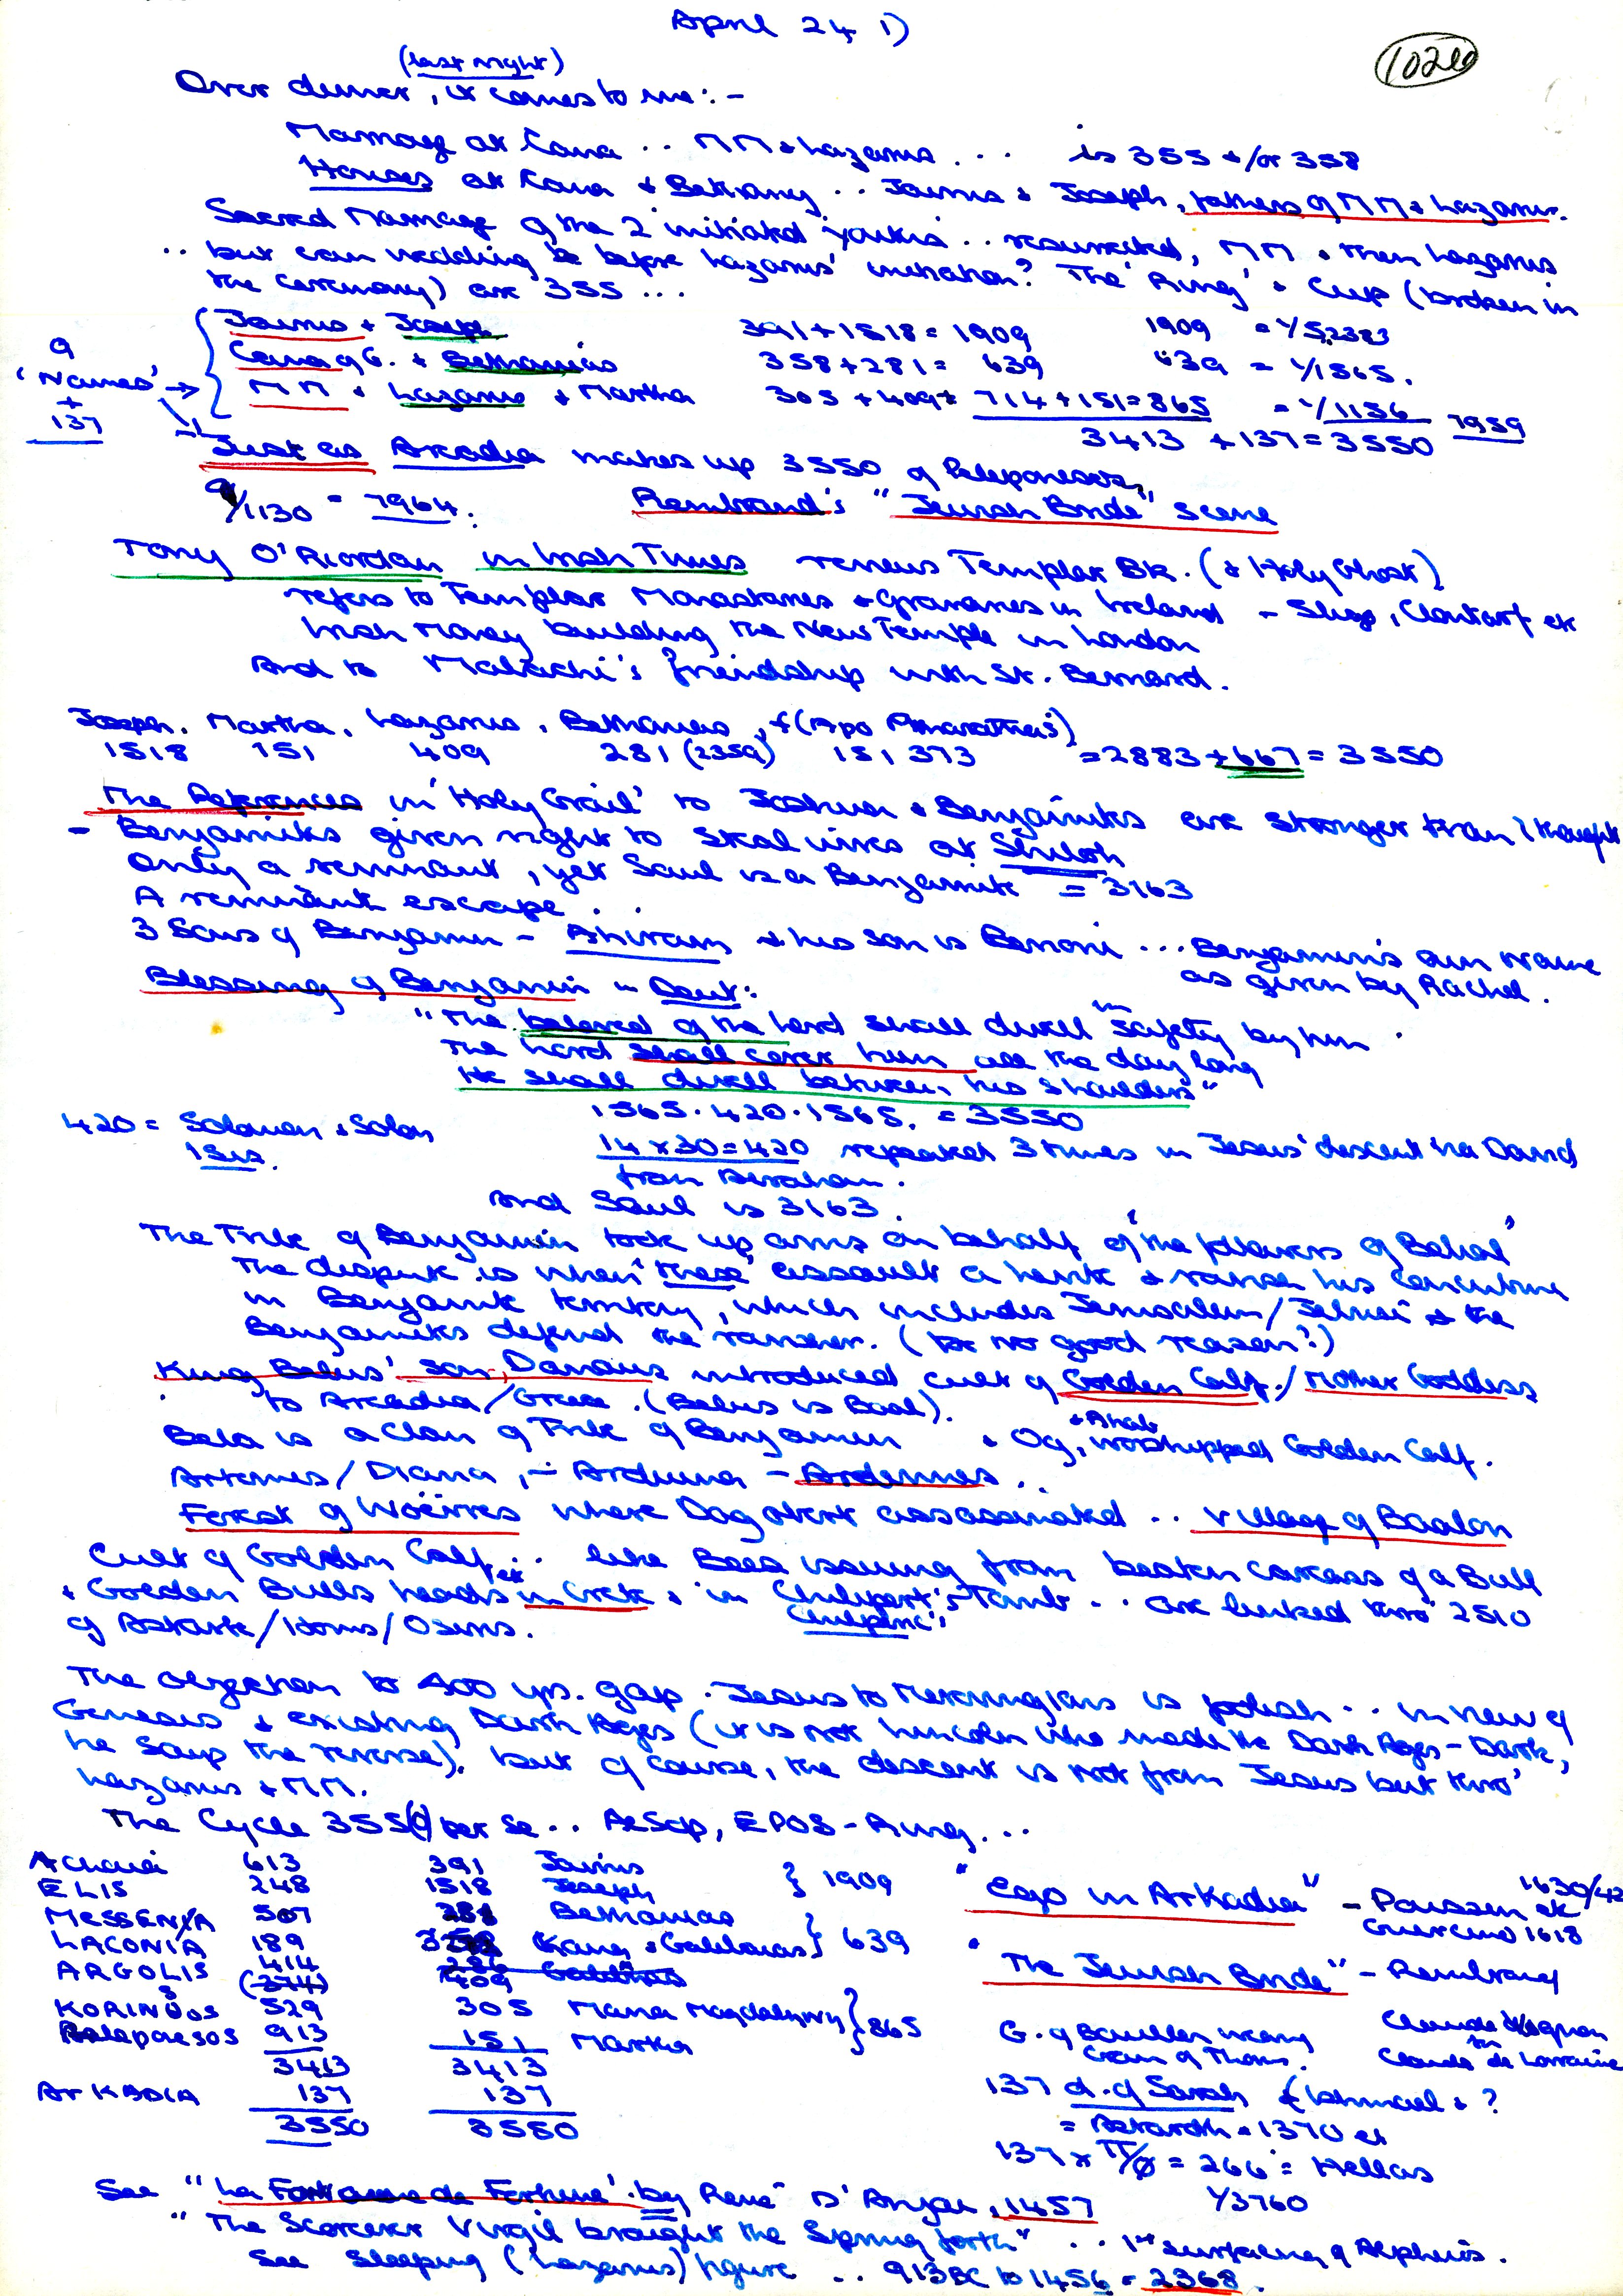 April 24 1)
102
(last night)
Over dinner, it comes to me:-
Marriage at Cana .. MM + Lazarus ... is 355 +/or 358
Houses at Cana + Bethany .. Jairus + Joseph, fathers of MM + Lazarus.
Sacred Marriage of the 2 initiated youths .. resurrected, MM + then Lazarus
.. but can wedding be before Lazarus' initiation? The 'Ring' + Cup (broken in
the Ceremony) are 355 ...
Jairus + Joseph 391 + 1518 = 1909 1909 = Y52383
Cana of G. + Bethanias 358 + 281 = 639 639 = Y1565.
9 'Names' → + 137
MM + Lazarus + Martha 305 + 409 + 714 + 151 = 865 = Y1156 1959
3413 + 137 = 3550
Just as Arcadia makes up 3550 of Peloponesos,
9/1130 = 7964. Rembrand's "Jewish Bride" scene
Tony O'Riordan in Irish Times reviews Templar Bk. (+ Holy Ghost)
refers to Templar Monastaries + Granaries in Ireland - Sligo, Clontarf etc
Irish Money building the New Temple in London
And to Malachi's friendship with St. Bernard.
Joseph. Martha, Lazarus, Bethanias, + (Apo)
1518 151 409 281 (2359) 151 373 = 2883 + 667 = 3550
The References in 'Holy Grail' to Joshua + Benjamites are stronger than I thought
- Benjamites given right to steal wives at Shiloh
Only a remnant, yet Saul is a Benjamite = 3163
A remnant escape ..
3 Sons of Benjamin - Ahiram + his son is Benoni ... Benjamin's own name
as given by Rachel.
Blessing of Benjamin in Deut:
"The beloved of the Lord shall dwell in safety by him.
The Lord shall cover him all the day long
He shall dwell between his shoulders"
1565. 420. 1565. = 3550
420 = Solomon + Solon
Isis.
14 x 30 = 420 repeated 3 times in Jesus' descent via David
from Abraham.
And Saul is 3163.
The Tribe of Benjamin took up arms on behalf of 'the followers of Belial'
The dispute is when 'these' assault a Levite + ravish his concubine
in Benjamite territory, which includes Jerusalem/Jebusi + the
Benjamites defend the ravisher. (for no good reason?)
King Belus' son, Danaus introduced cult of Golden Calf / Mother Goddess
to Arcadia/Greece. (Belus is Baal).
Bela is a clan of Tribe of Benjamin + Og, + Ahab worshipped Golden Calf.
Artemis/Diana, - Arduina - Ardennes.
Forest of Woëvres where Dagobert assassinated .. Village of Baalon
Cult of Golden Calf .. like Bees issuing from beaten carcass of a Bull
+ Golden Bulls heads etc in Crete + in Chilpert's Tomb .. are linked thro' 2510
Chilperic's
of Astarte/Horus/Osiris.
The objection to 400 yrs. gap. Jesus to Merovingians is foolish .. in view of
Genesis + existing Dark Ages (it is not Lincoln who made the Dark Ages - Dark,
he says the reverse). But of course, the descent is not from Jesus but thro'
Lazarus + MM.
The Cycle 355(0) per se .. AESop, EPOS - Ring ...
Achaia 613 391 Jairus } 1909
ELIS 248 1518 Joseph
MESSENIA 507 281 Bethanias } 639
LACONIA 189 358 Kana + Galilaias
ARGOLIS 414 (374) 409
KORINθos 529 305 Maria Magdalyny } 865
Pelopaesos 913 151 Martha
3413 3413
ARKADIA 137 137
3550 3550
"Ego in Arkadia" - Poussin etc 1630/42
Guercino 1618
"The Jewish Bride" - Rembrand
G. of Bouillon wearing
Crown of Thorns.
Claude
Claude de Lorraine
137 d. of Sarah + (Ishmael + ?
= Astaroth = 1370 etc
137 x π/Ø = 266 = Hellas
Y3760
See "La Fontaine de Fortune" by René D'Anjou, 1457
"The Sorcerer Virgil brought the Spring forth" .. 1st surfacing of Alpheus.
See Sleeping (Lazarus) figure .. 913BC to 1456 = 2368.